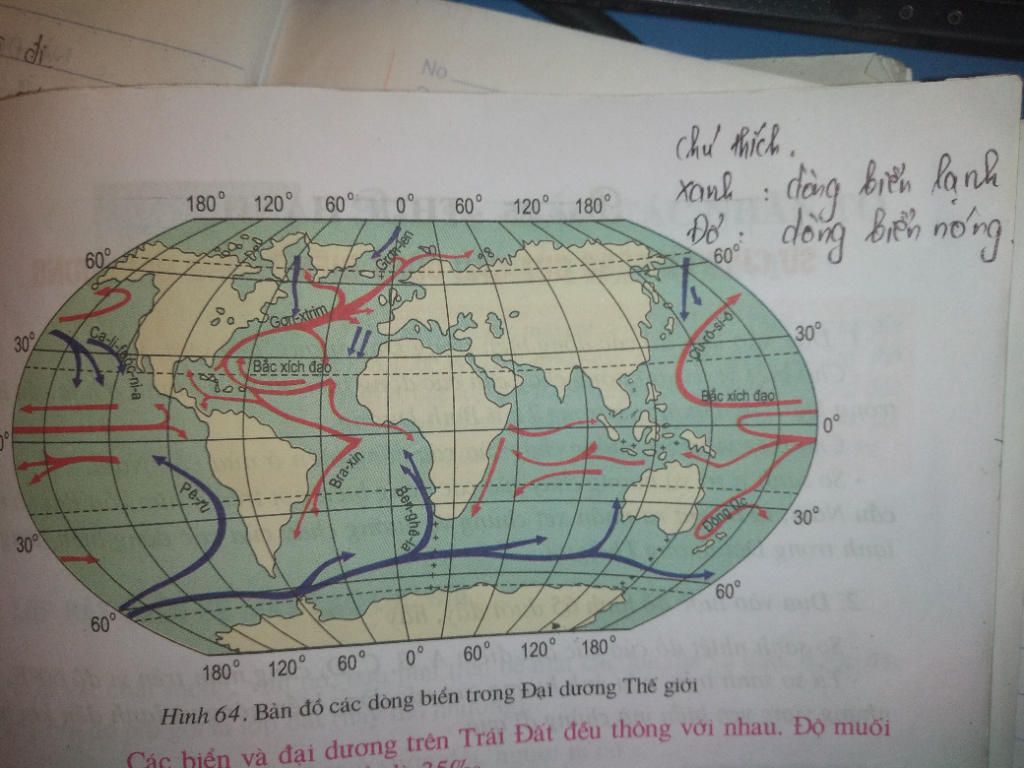 đi.
No
Chú thích.
xanh : dòng biển lạnh
Đỏ : dòng biển nóng.
180° 120° 60° 0° 60° 120° 180°
60° 60°
Grơn-len
Gơn-xtrim
Cư-rô-si-ô
30° 30°
Ca-li-phoóc-ni-a
Bắc xích đạo
Bắc xích đạo
0° 0°
Bra-xin
Pê-ru
Ben-ghê-la
Đông Úc
30° 30°
60° 60°
180° 120° 60° 0° 60° 120° 180°
Hình 64. Bản đồ các dòng biển trong Đại dương Thế giới
Các biển và đại dương trên Trái Đất đều thông với nhau. Độ muối
35‰